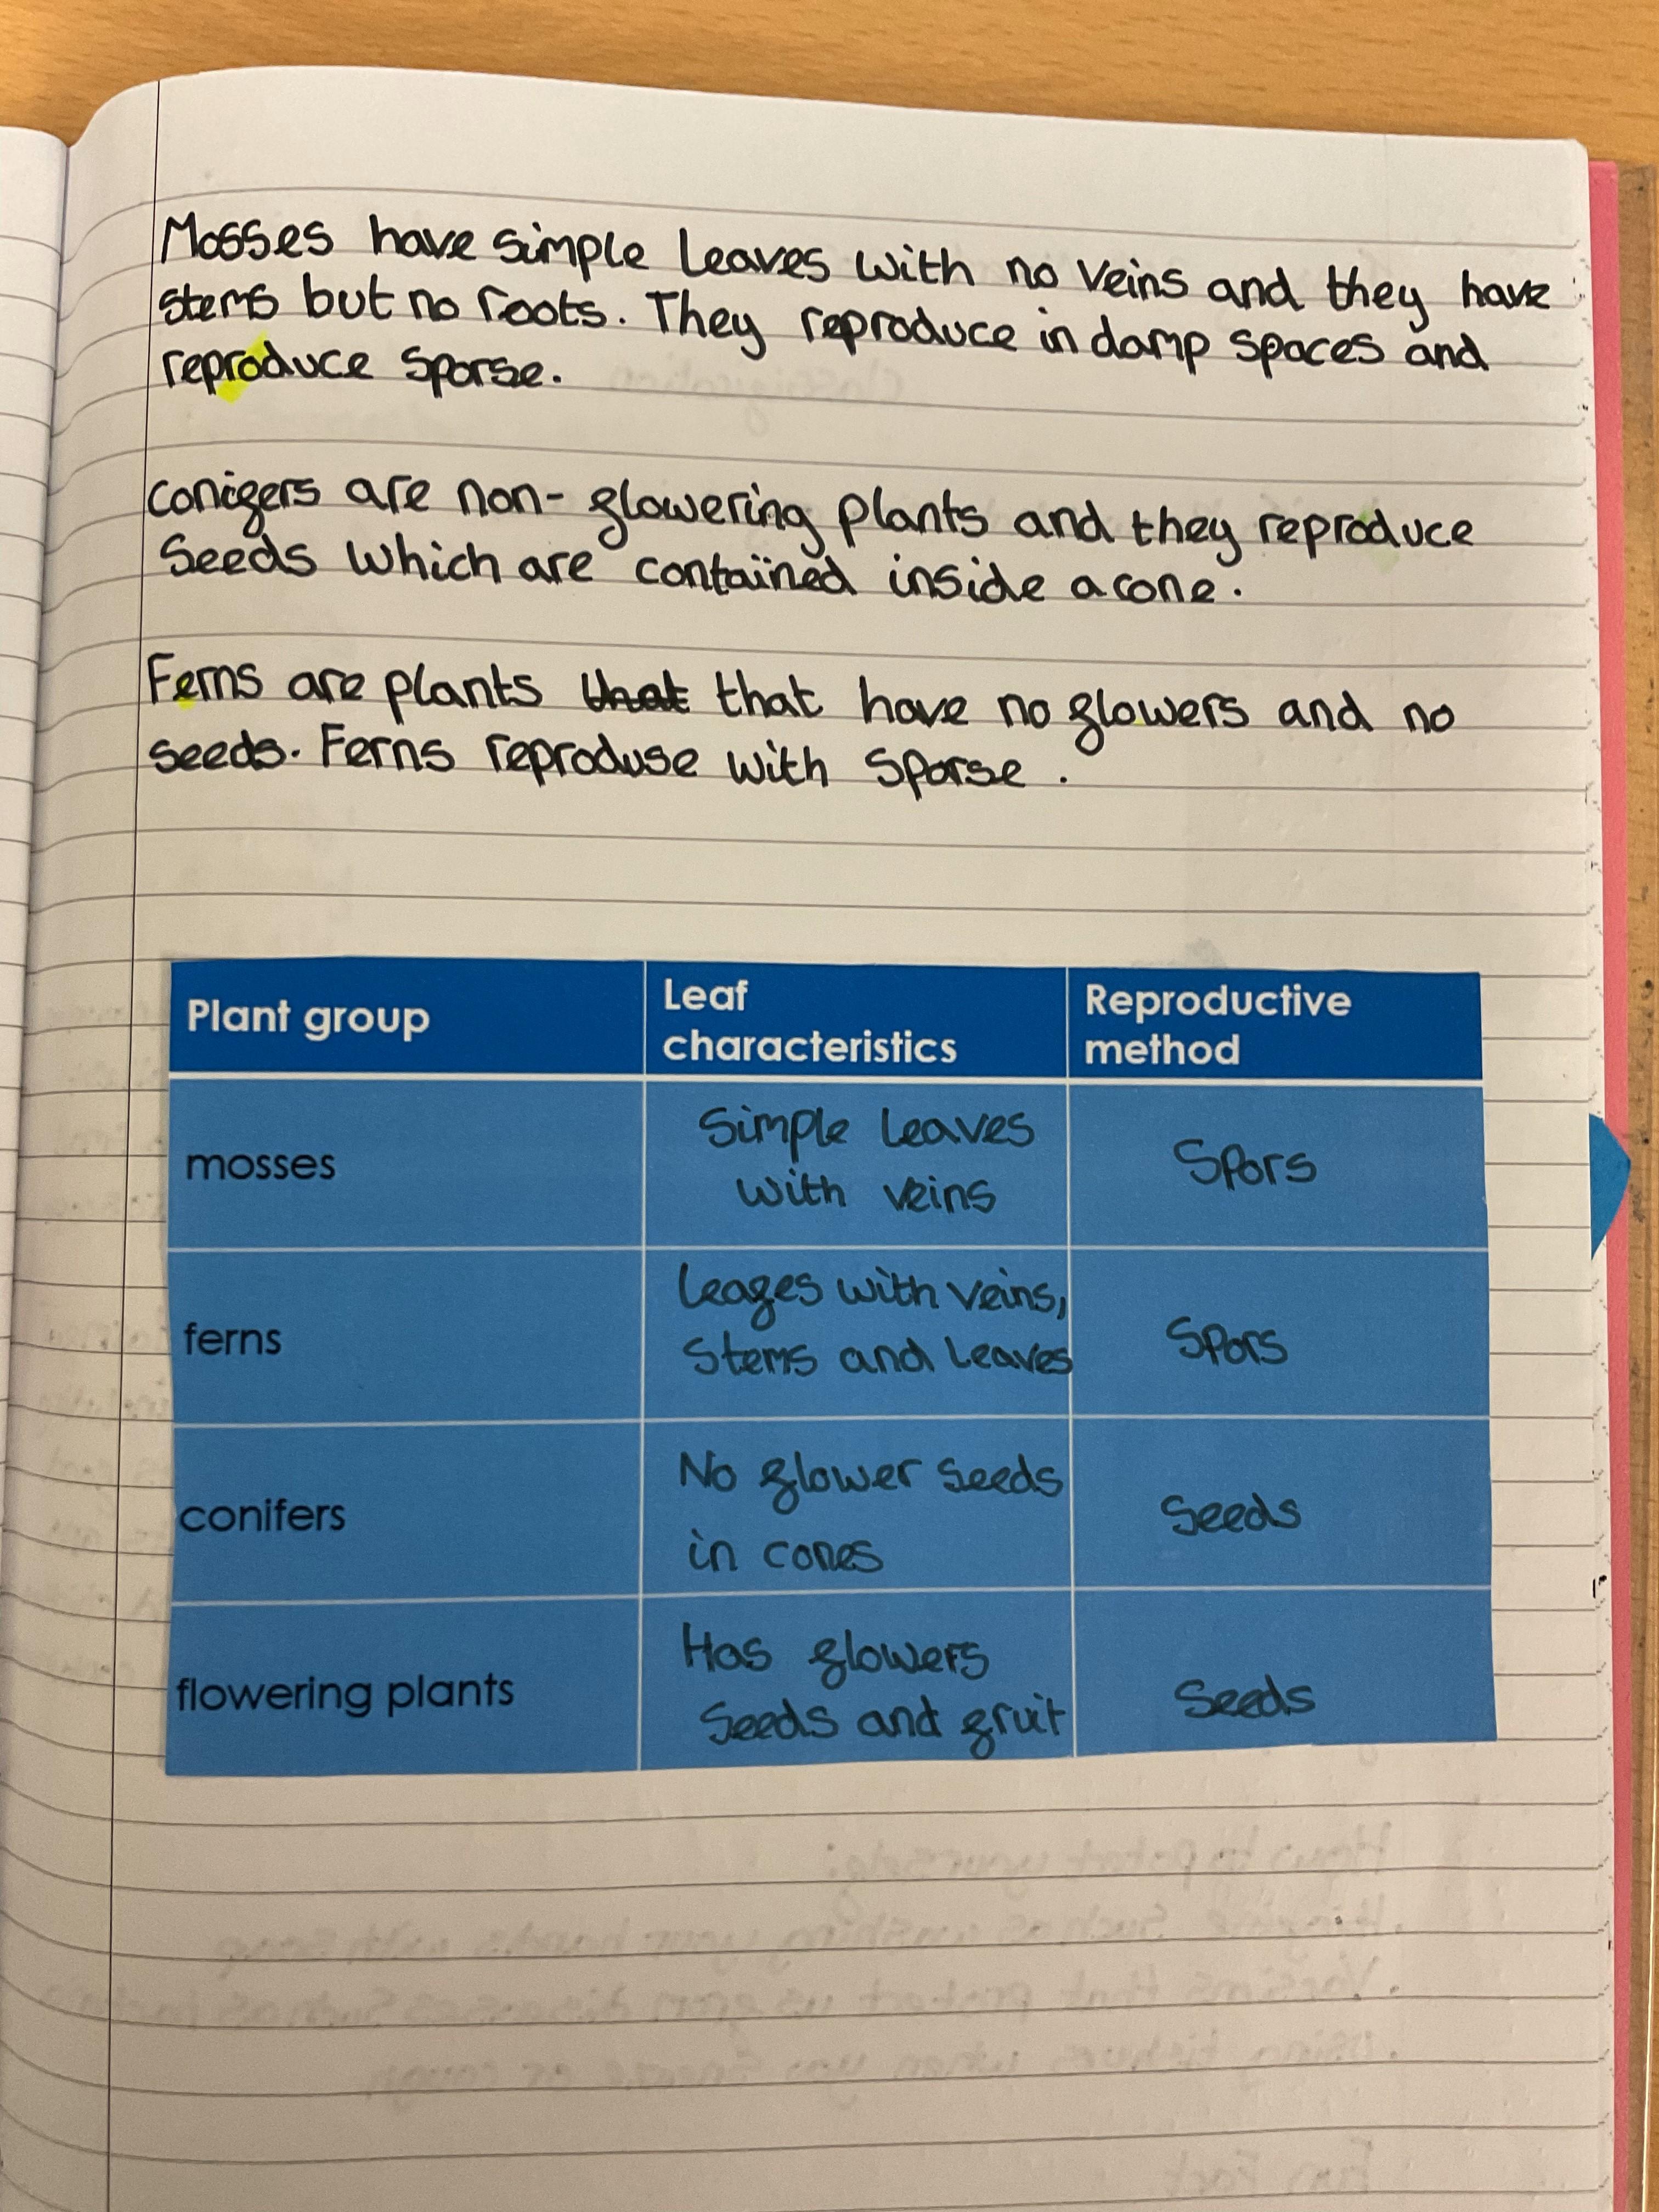 Mosses have simple leaves with no veins and they have
stems but no roots. They reproduce in damp spaces and
reproduce sparse.
conifers are non-flowering plants and they reproduce
Seeds which are contained inside a cone.
Ferns are plants that that have no flowers and no
seeds. Ferns reproduse with sparse.
Plant group
Leaf
characteristics
Reproductive
method
mosses
Simple leaves
with veins
Spors
ferns
leafes with veins,
stems and leaves
Spors
conifers
No flower seeds
in cones
Seeds
flowering plants
Has flowers
Seeds and fruit
Seeds